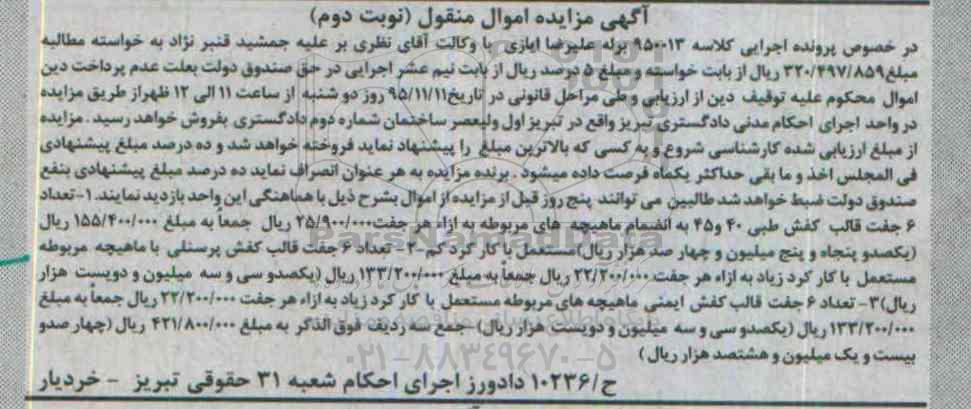 آگهی مزایده اموال منقول (نوبت دوم)
در خصوص پرونده اجرایی کلاسه ۹۵۰۰۱۳ برله علیرضا ایازی با وکالت آقای نظری بر علیه جمشید قنبر نژاد به خواسته مطالبه
مبلغ ۳۲۰/۴۹۷/۸۵۹ ریال از بابت خواسته و مبلغ ۵ درصد ریال از بابت نیم عشر اجرایی در حق صندوق دولت بعلت عدم پرداخت دین
اموال محکوم علیه توقیف دین از ارزیابی و طی مراحل قانونی در تاریخ ۹۵/۱۱/۱۱ روز دو شنبه از ساعت ۱۱ الی ۱۲ ظهر از طریق مزایده
در واحد اجرای احکام مدنی دادگستری تبریز واقع در تبریز اول ولیعصر ساختمان شماره دوم دادگستری بفروش خواهد رسید. مزایده
از مبلغ ارزیابی شده کارشناسی شروع و به کسی که بالاترین مبلغ را پیشنهاد نماید فروخته خواهد شد و ده درصد مبلغ پیشنهادی
فی المجلس اخذ و ما بقی حداکثر یکماه فرصت داده میشود. برنده مزایده به هر عنوان انصراف نماید ده درصد مبلغ پیشنهادی بنفع
صندوق دولت ضبط خواهد شد طالبین می توانند پنج روز قبل از مزایده از اموال بشرح ذیل با هماهنگی این واحد بازدید نمایند. ۱-تعداد
۶ جفت قالب کفش طبی ۴۰ و ۴۵ به انضمام ماهیچه های مربوطه به ازاء هر جفت ۲۵/۹۰۰/۰۰۰ ریال جمعاً به مبلغ ۱۵۵/۴۰۰/۰۰۰ ریال
(یکصدو پنجاه و پنج میلیون و چهار صد هزار ریال)مستعمل با کار کرد کم ۲- تعداد ۶ جفت قالب کفش پرسنلی با ماهیچه مربوطه
مستعمل با کار کرد زیاد به ازاء هر جفت ۲۲/۲۰۰/۰۰۰ ریال جمعاً به مبلغ ۱۳۳/۲۰۰/۰۰۰ ریال (یکصدو سی و سه میلیون و دویست هزار
ریال)۳- تعداد ۶ جفت قالب کفش ایمنی ماهیچه های مربوطه مستعمل با کار کرد زیاد به ازاء هر جفت ۲۲/۲۰۰/۰۰۰ ریال جمعاً به مبلغ
۱۳۳/۲۰۰/۰۰۰ ریال (یکصدو سی و سه میلیون و دویست هزار ریال) -جمع سه ردیف فوق الذکر به مبلغ ۴۲۱/۸۰۰/۰۰۰ ریال (چهار صدو
بیست و یک میلیون و هشتصد هزار ریال)
ح/۱۰۲۳۶ دادورز اجرای احکام شعبه ۳۱ حقوقی تبریز - خردیار
ParsNamadData
۰۲۱-۸۸۳۴۹۶۷۰-۵